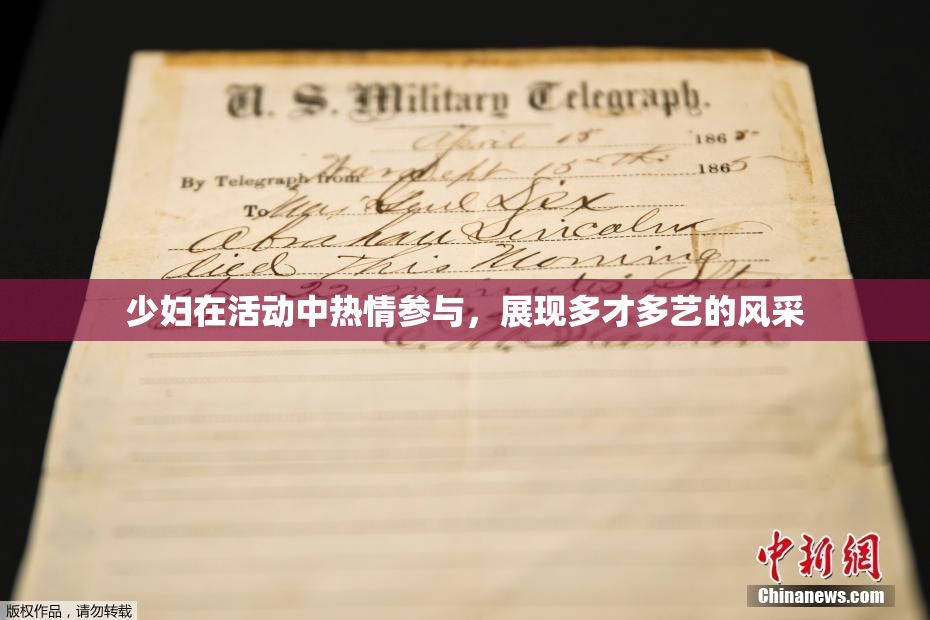 U. S. Military Telegraph.
April 15 1865
By Telegraph from War Dept 15th 1865
To Maj Genl Dix
Abraham Lincoln
died This Morning
at 22 minutes after
少妇在活动中热情参与，展现多才多艺的风采
E. M. Stanton
中新网
Chinanews.com
版权作品，请勿转载